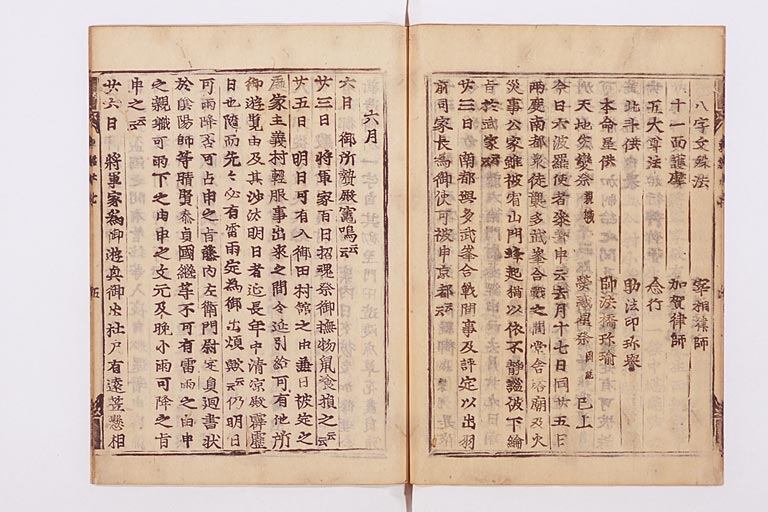 八字文殊法 宰相律師
十一面護摩 加賀律師
五大尊法 念行
北斗供 助法印珎誉
本命星供 帥法橋珎瑜
天地災變祭 親職 熒惑星祭 国継 已上
今日六波羅使者來著申云去月十七日同廿五日
兩度南都衆徒與多武峯合戰之間堂舎塔廟及火
災事公家雖被宥山門蜂起猶以依不静謐被下綸
旨於武家云云
廿三日南都與多武峯合戰間事及評定以出羽
前司家長爲御使可被申京都云云
六月
六日 御所贄殿竃鳴云云
廿三日 將軍家百日招魂祭御撫物鼠食損之云云
廿五日 依明日可有入御田村館之由兼日被定之
處家主義村輕服事出來之間令延引給可有他所
御遊覽由及其沙汰明日者延長年中清涼殿霹靂
日也隨而先々必有雷雨定爲御出煩歟云云仍明日
可雨降否可占申之旨藤内左衛門尉定員廻書状
於陰陽師等晴賢泰貞國繼等不可有雷雨之由申
之親職可雨下之由申之文元及晩小雨可降之旨
申之云云
廿六日 將軍家爲御遊興御出杜戸有遠笠懸相